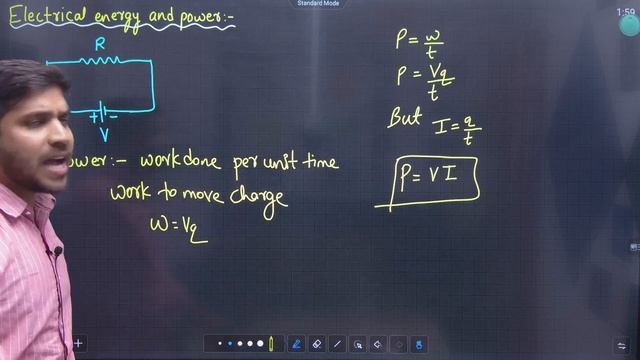 Standard Mode
1:59
Electrical energy and power:-
R
+ -
V
Power:- workdone per unit time
work to move charge
W = Vq
P = w/t
P = Vq/t
But I = q/t
P = VI